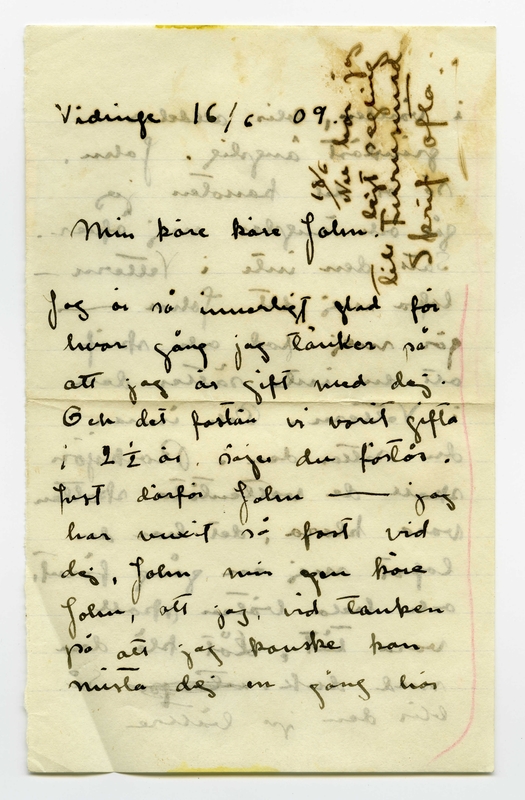 Vidinge 16/6 09.
18/6
Nu har jag
ligt segling
till Furusund
Skrif ofta
Min käre käre John.
Jag är så innerligt glad för
hvar gång jag tänker på
att jag är gift med dej.
Och det fastän vi varit gifta
i 2 1/2 år, säger du förstås.
Just därför John — jag
har vuxit så fast vid
dej, John min egen käre
John, att jag, vid tanken
på att jag kanske kan
mista dej en gång här